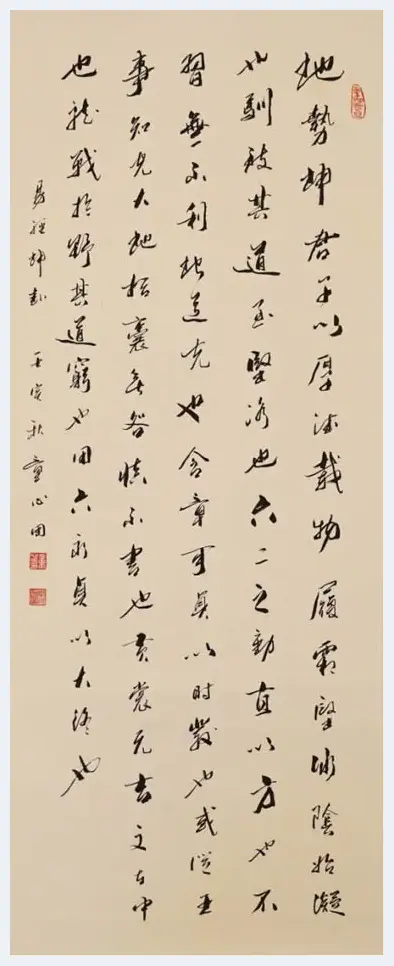 地勢坤君子以厚德載物履霜堅冰陰始凝
也馴致其道至堅冰也六二之動直以方也不
習無不利地道光也含章可貞以时發也或從王
事知光大地括囊无咎慎不害也黄裳元吉文在中
也龍戰於野其道窮也用六永貞以大終也
易經坤卦 壬寅秋童心田